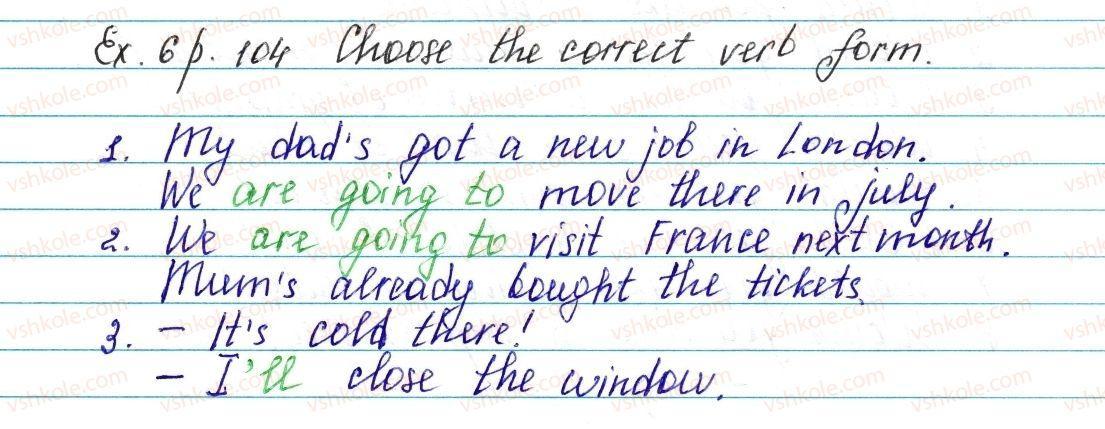 Ex. 6 p. 104 Choose the correct verb form.
1. My dad's got a new job in London.
We are going to move there in july.
2. We are going to visit France next month.
Mum's already bought the tickets.
3. – It's cold there!
– I'll close the window.